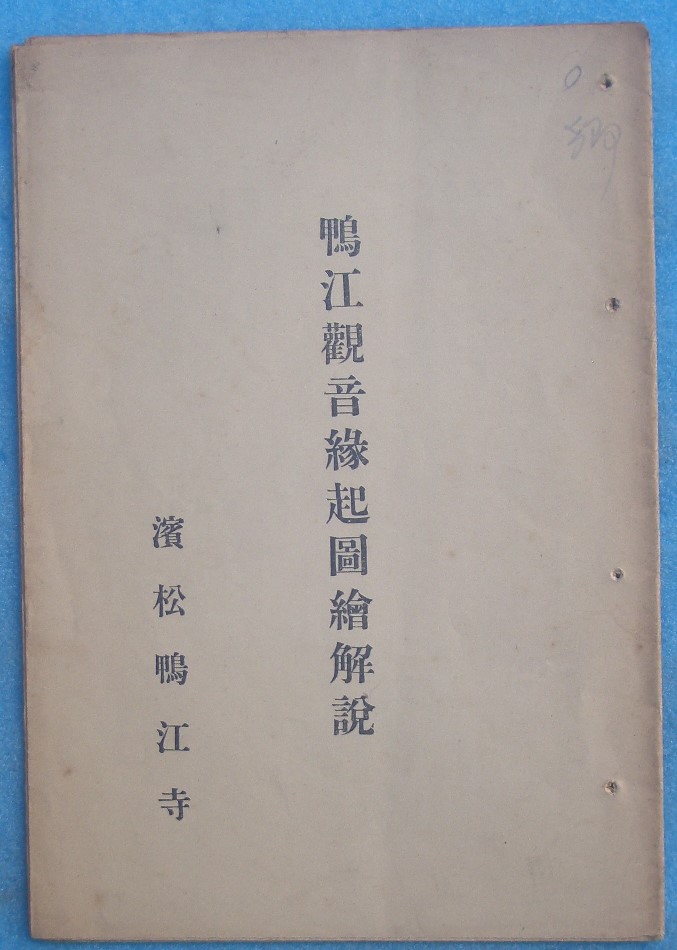 鴨江觀音緣起圖繪解說
濱松鴨江寺